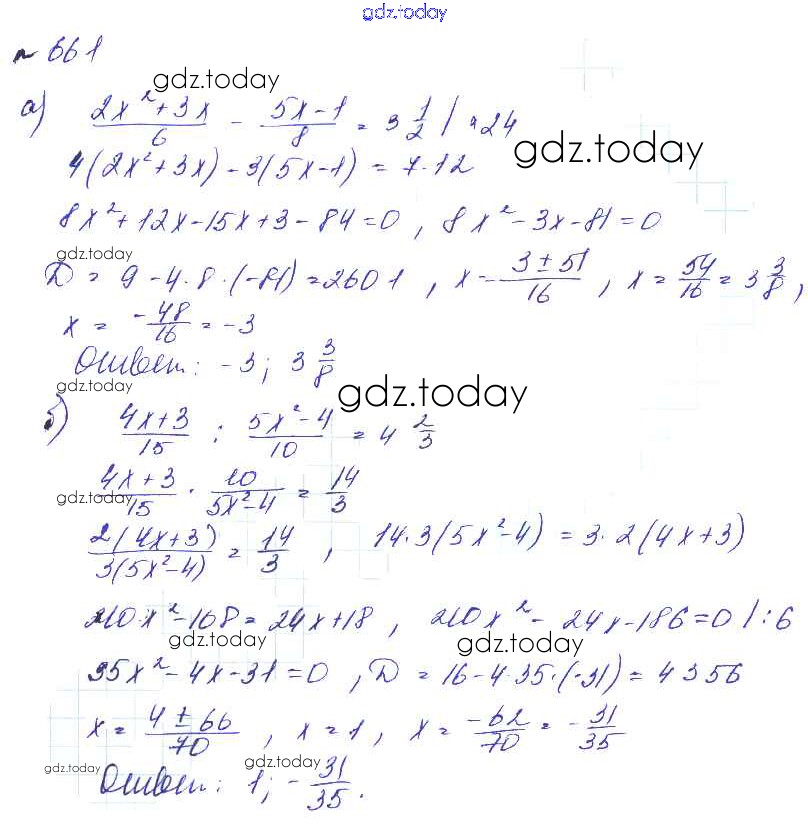 gdz.today
№ 661
gdz.today
а) (2x² + 3x)/6 - (5x - 1)/8 = 3 1/2 | · 24
gdz.today
4(2x² + 3x) - 3(5x - 1) = 7 · 12
8x² + 12x - 15x + 3 - 84 = 0 , 8x² - 3x - 81 = 0
gdz.today
D = 9 - 4 · 8 · (-81) = 2601 , x = (3 ± 51)/16 , x = 54/16 = 3 3/8 ,
x = -48/16 = -3
Ответ: -3; 3 3/8
gdz.today
gdz.today
б) (4x + 3)/15 : (5x² - 4)/10 = 4 2/3
(4x + 3)/15 · 10/(5x² - 4) = 14/3
gdz.today
2(4x + 3)/3(5x² - 4) = 14/3 , 14 · 3(5x² - 4) = 3 · 2(4x + 3)
210x² - 168 = 24x + 18 , 210x² - 24x - 186 = 0 | : 6
gdz.today
gdz.today
35x² - 4x - 31 = 0 , D = 16 - 4 · 35 · (-31) = 4356
x = (4 ± 66)/70 , x = 1 , x = -62/70 = -31/35
gdz.today
gdz.today
Ответ: 1; -31/35.